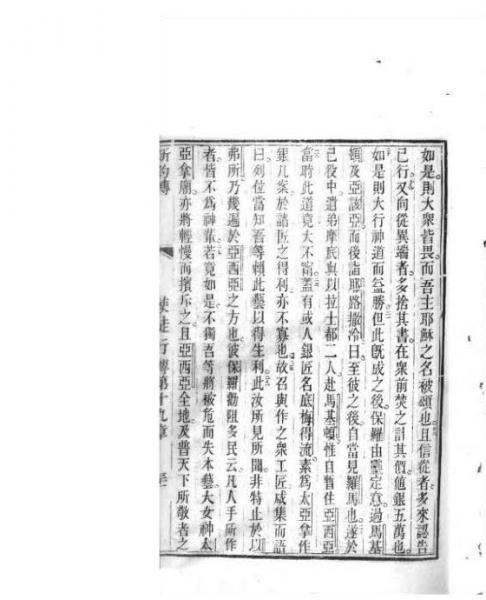 如是則大衆皆畏而吾主耶穌之名被頌也且信從者多來認告
己行又向從異端者多捨其書在衆前焚之計其價値銀五萬也
如是則大行神道而益勝但此旣成之後保羅由靈定意過馬基
頓及亞該亞而後詣耶路撒冷曰至彼之後自當見羅馬也遂於
己役中遺弟摩底與以拉士都二人赴馬基頓惟自暫住亞西亞
當時此道竟大不甯蓋有或人銀匠名底梅得流素爲太亞拿作
銀凡案於諸匠之得利亦不寡也故召與作之衆工匠咸集而語
曰列位當知吾等賴此藝以得生利此汝所見所聞非特止於以
弗所乃幾遍於亞西亞之方也彼保羅勸阻多民云凡人手所作
者皆不爲神輩若竟如是不獨吾等將被危而失本藝大女神太
亞拿廟亦將輕慢而擯斥之且亞西亞全地及普天下所敬者之
新約傳 使徒行傳第十九章